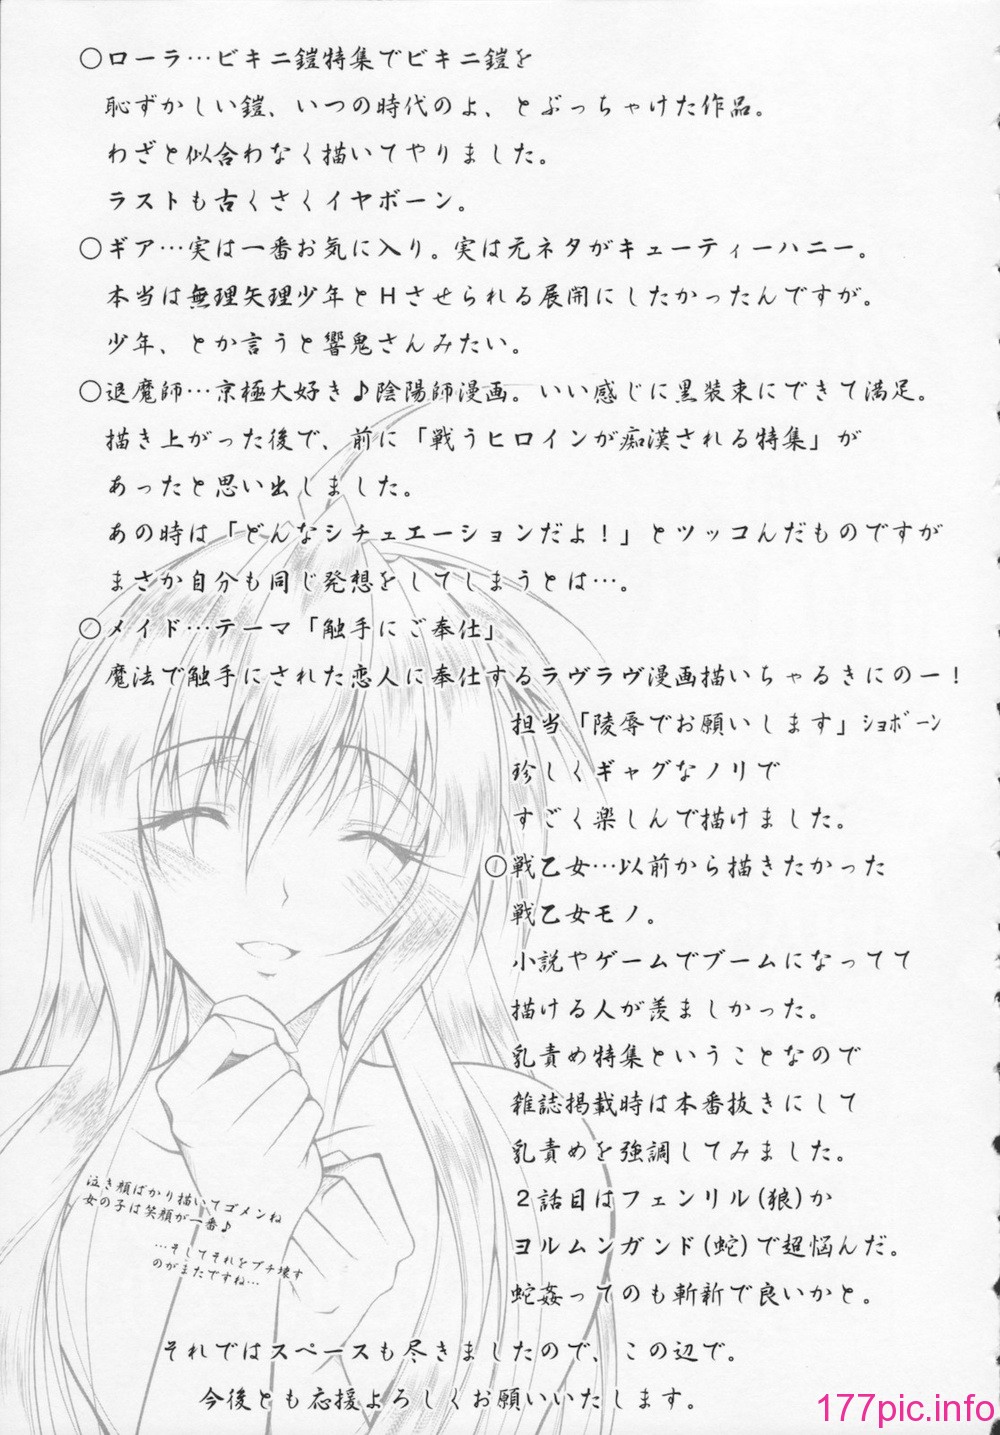 ○ローラ…ビキニ鎧特集でビキニ鎧を
恥ずかしい鎧、いつの時代のよ、とぶっちゃけた作品。
わざと似合わなく描いてやりました。
ラストも古くさくイヤボーン。
○ギア…実は一番お気に入り。実は元ネタがキューティーハニー。
本当は無理矢理少年とHさせられる展開にしたかったんですが。
少年、とか言うと響鬼さんみたい。
○退魔師…京極大好き♪陰陽師漫画。いい感じに黒装束にできて満足。
描き上がった後で、前に「戦うヒロインが痴漢される特集」が
あったと思い出しました。
あの時は「どんなシチュエーションだよ！」とツッコんだものですが
まさか自分も同じ発想をしてしまうとは…。
○メイド…テーマ「触手にご奉仕」
魔法で触手にされた恋人に奉仕するラヴラヴ漫画描いちゃるきにのー！
担当「陵辱でお願いします」ｼｮﾎﾞｰﾝ
珍しくギャグなノリで
すごく楽しんで描けました。
○戦乙女…以前から描きたかった
戦乙女モノ。
小説やゲームでブームになってて
描ける人が羨ましかった。
乳責め特集ということなので
雑誌掲載時は本番抜きにして
乳責めを強調してみました。
２話目はフェンリル(狼)か
ヨルムンガンド(蛇)で超悩んだ。
蛇姦ってのも斬新で良いかと。
泣き顔ばかり描いてゴメンね
女の子は笑顔が一番♪
…そしてそれをブチ壊す
のがまたですね…
それではスペースも尽きましたので、この辺で。
今後とも応援よろしくお願いいたします。
177pic.info